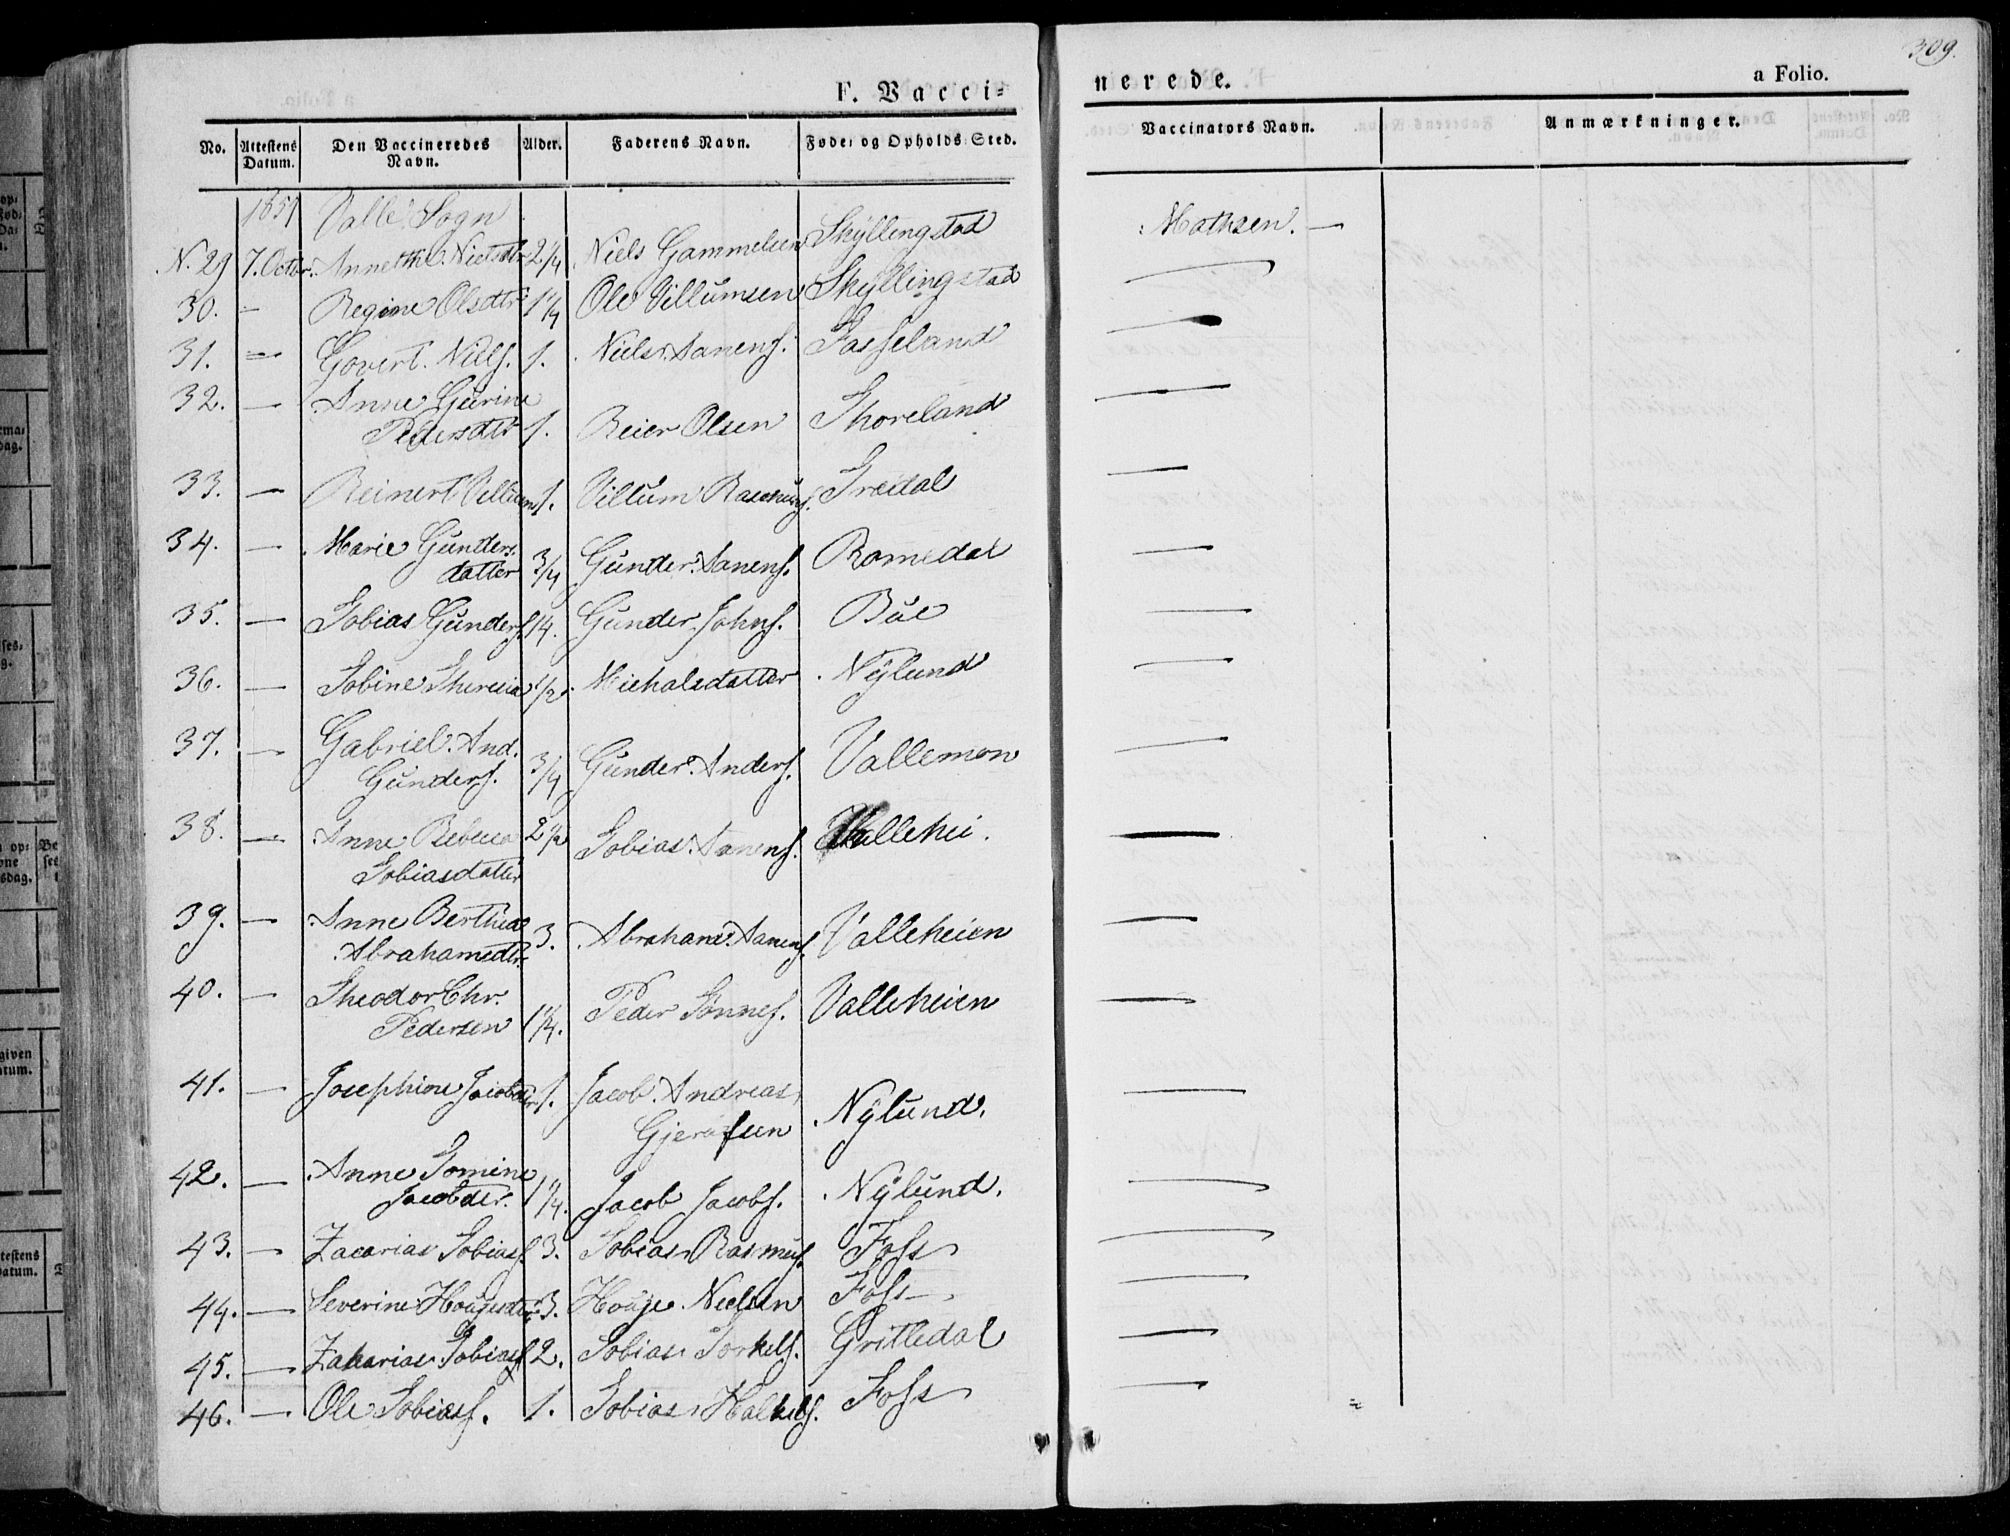 309.
F. Vacci=
nerede.
a Folio.
No. Attestens Datum. Den Vaccineredes Navn. Alder. Faderens Navn. Føde= og Opholds=Sted. Vaccinators Navn. Anmærkninger.
1851 Valle Sogn
N. 29 7. Octbr. Annethe Nielsdtr 2 1/4 Niels Gammelsen Skyllingstad Mathsen. —
30. — Regine Olsdtr 1 1/4 Ole Villumsen Skyllingstad —
31. — Govert Niels. 1. Niels Aanens. Fasseland —
32. — Anne Gurine
Pedersdtr 1. Reier Olsen Thoreland —
33. — Reinert Villum 1. Villum Rasmus. Tredal —
34. — Marie Gunders.
datter 3/4 Gunder Aanens. Romedal —
35. — Tobias Gunders. 14. Gunder Johns. Böe —
36. — Tobine Theresia 1/2. Michalsdatter Nÿlund —
37. — Gabriel And.
Gunders. 3/4 Gunder Anders. Vallemon —
38. — Anne Rebecca 2 1/2 Tobias Aanens. Vallehei. —
Tobiasdatter
39. — Anne Berthea
Abrahamsdtr. 3. Abraham Aanens. Valleheien —
40. — Theodor Chr.
Pedersen 1 1/4. Peder Tønnes. Valleheien —
41. — Josephine Jacobdtr 1. Jacob Andreas
Nÿlund. —
42. — Anne Tomine
Jacobdtr. 1 1/4. Jacob Jacobs. Nÿlund. —
43. — Zacarias Tobias. 3. Tobias Rasmus. Foss —
44. — Severine Hougesdtr. 3. Houge Nielsen Foss —
45. — Zakarias Tobias. 2. Tobias Torkels. Gritledal —
46. — Ole Tobias. 1. Tobias Halkels. Foss —